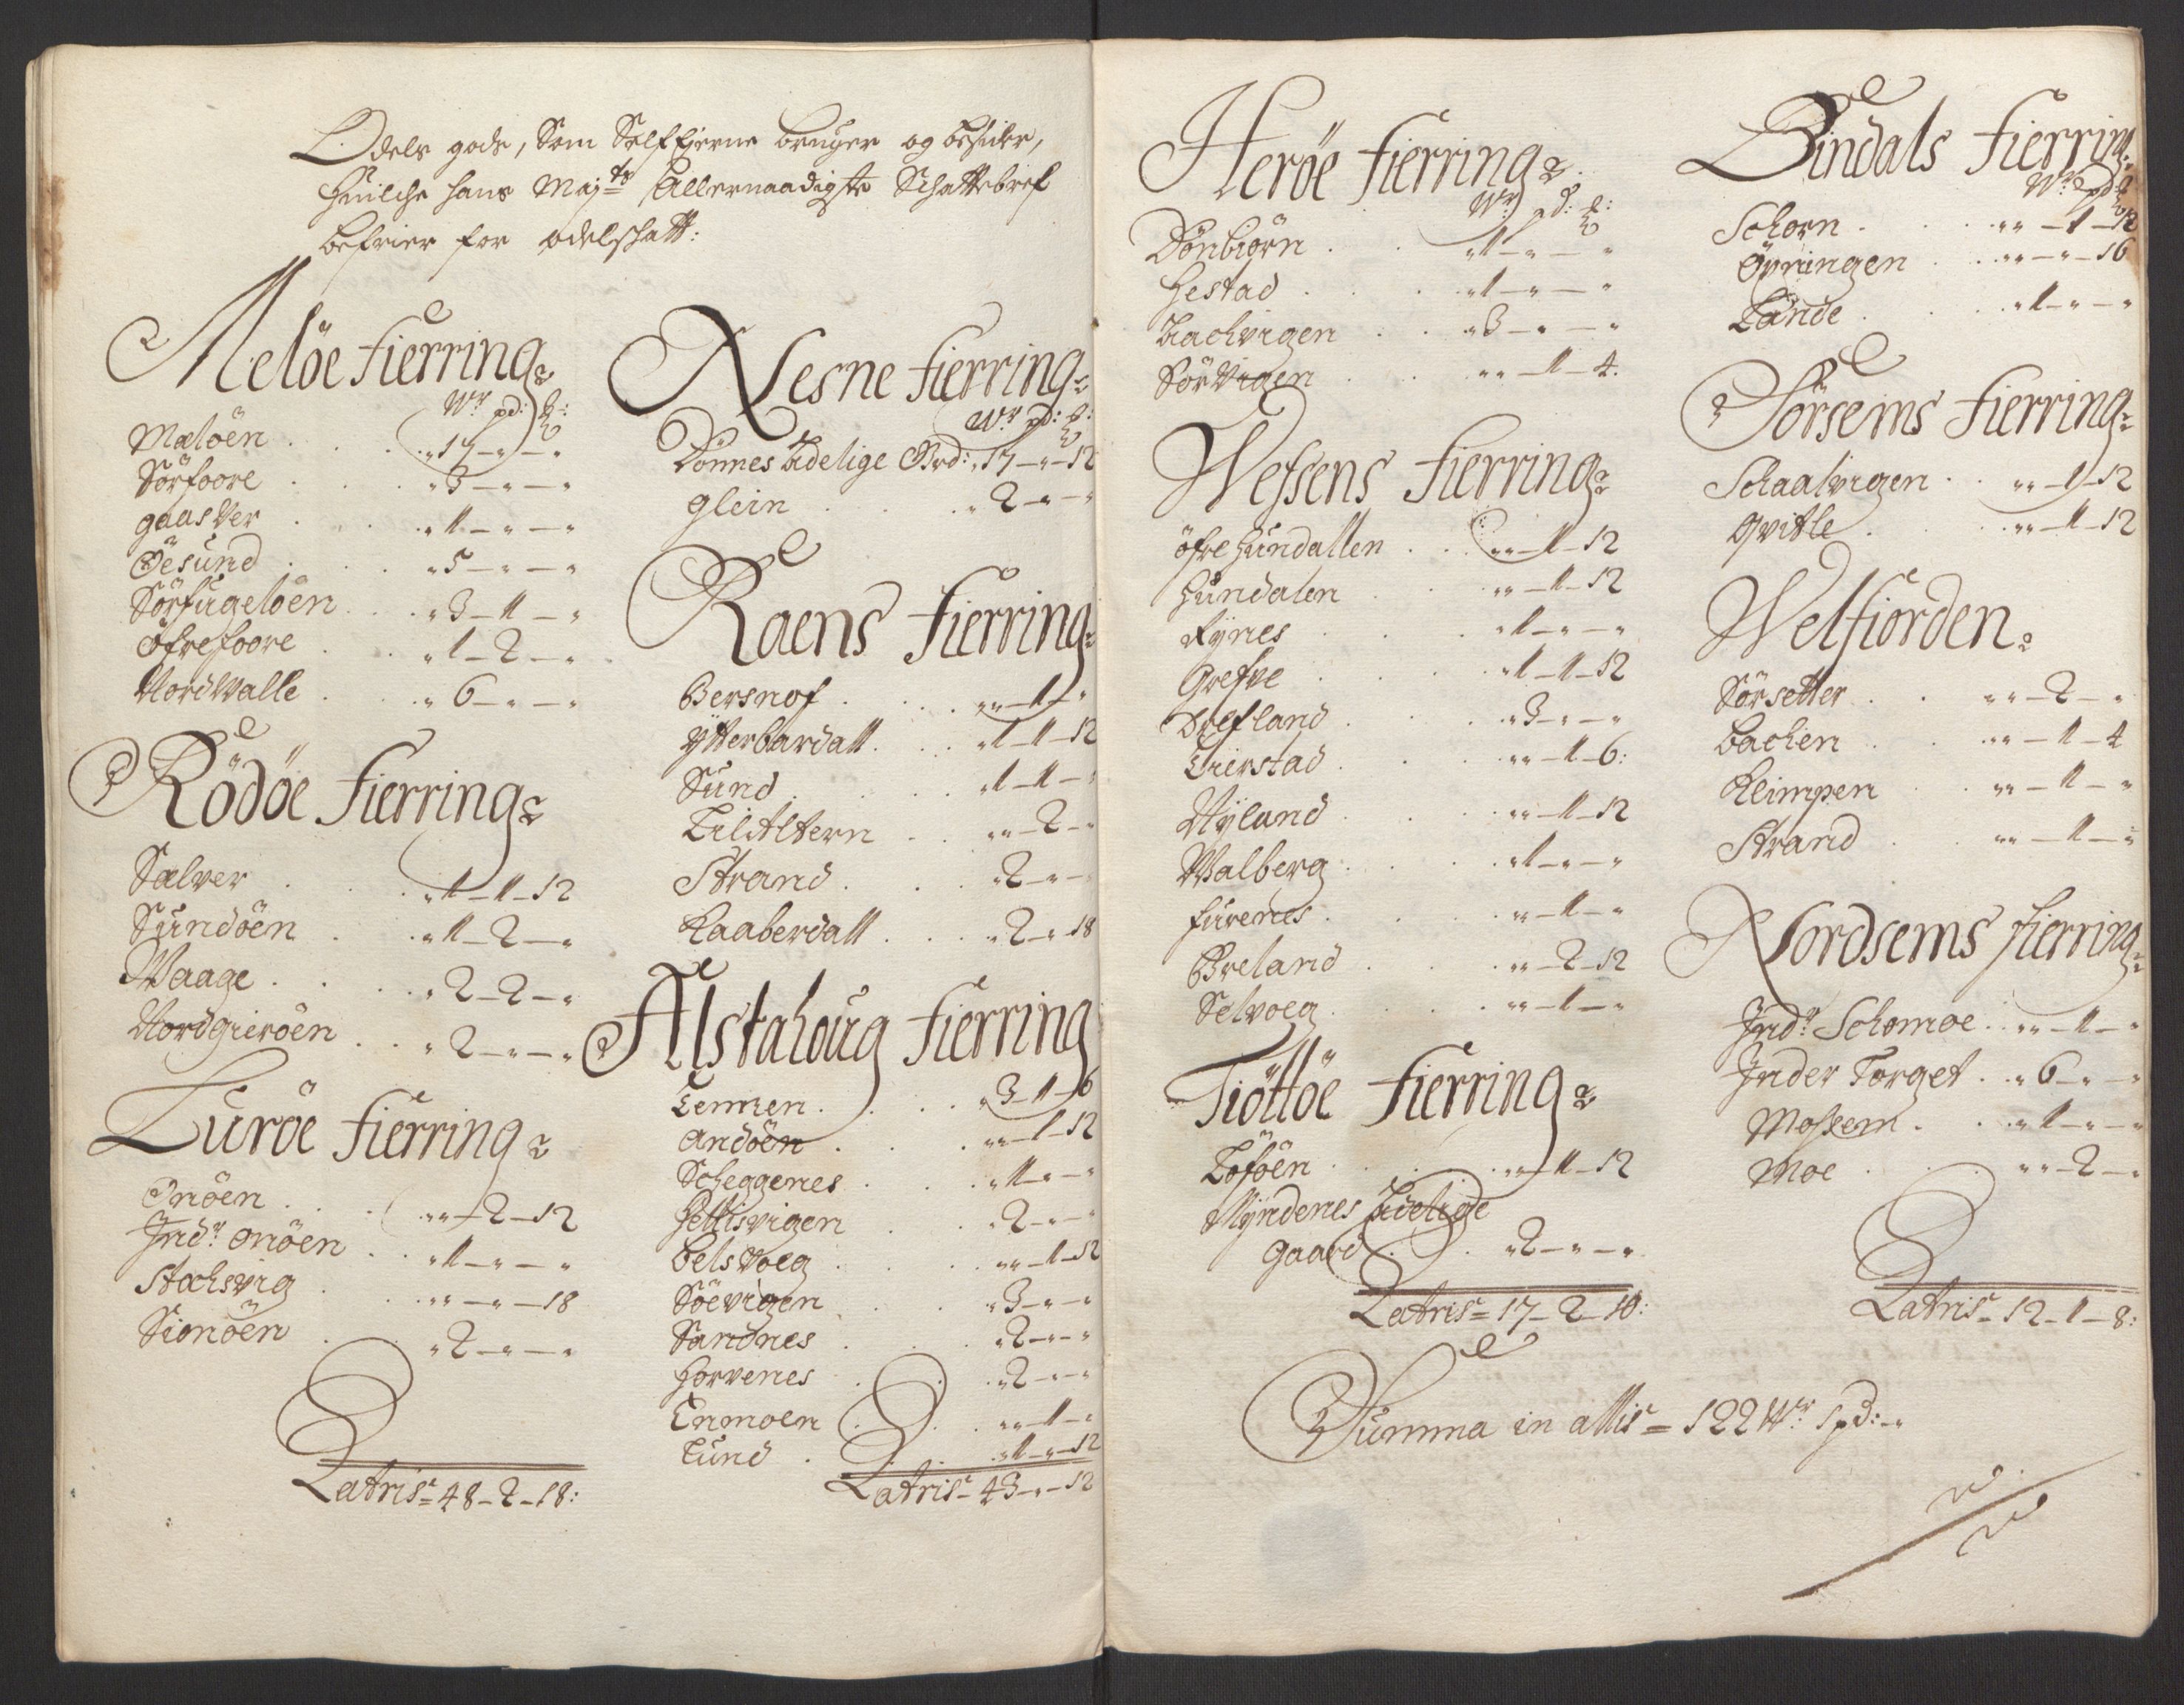 Odels gods, Som Selffejerne bruger og besider,
Huilche hans Maj:ts Allernaadigste Schattebref
befrier for odelschatt:
Meløe fierring
Wr pd: ℔:
Meløen . . . „17 – „ – „
Sørfoore . . . „3 – „ – „
gaasver . . . „1 – „ – „
Øesund . . . „5 – „ – „
Sørfugeløen . . „3 – 1 – „
ofrefoore . . . „1 – 2 – „
Nordwalle . . . „6 – „ – „
Rödöe fierring
Selver . . . „1 – 1 – 12
Sundöen . . . „1 – 2 – „
Waage . . . „2 – 2 – „
Nordgieröen . . „2 – „ – „
Luröe fierring
Onöen . . . „„ – 2 – 12
Indr: onöen . . „1 – „ – „
Stochsvig . . . „„ – „ – 18
Sionöen . . . „2 – „ – „
Latris = 48 – 2 – 18:
Nesne fierring
Wr pd: ℔:
Dönnes Adelige Grd: „17 – „ – 12
glein . . . „2 – „ – „
Raens fierring
Bersnof . . . „„ – 1 – „
Ytterbardall . . „1 – 1 – 12
Sund . . . „1 – 1 – „
Lilitltern . . „„ – 2 – „
Strand . . . „2 – „ –
Kaaberdall . . . „2 – „ 18
Alstahoug fierring
Lennen . . . „3 – 1 – 6
andöen . . . „„ – 1 – 12
Scheggenes . . . „1 – „ – „
Hellisvigen . . „2 – „ – „
belsvoeg . . . „„ – 1 – 12
Söevigen . . . „3 – „ – „
Sandnes . . . „2 – „ – „
Horvenes . . . „2 – „ – „
Enmoen . . . „„ – 1 – „
Lund . . . „1 – „ – 12
Latris – 43 – „ – 12
Heröe fierring
Wr pd: ℔:
Dönbiörn . . „1 – „ – „
Hestad . . . „1 – „ – „
Zachvigen . . „3 – „ – „
Sörvigen . . „„ – 1 – 4.
Wefsens fierring
öfre Hundallen . . „„ – 1 – 12
Hundalen . . „„ – 1 – 12
Rÿnes . . „1 – „ – „
Grefve . . „1 – 1 – 12
Dolfland . . „3 – „ – „
Eierstad . . „„ – 1 – 6:
Nÿland . . „„ – 1 – 12
Walberg . . „1 – „ – „
furenes . . „„ – 1 – „
Breland . . „„ – 2 – 12
Selvoeg . . „„ – 1 – „
Tiöttöe fierring
Toföen . . „„ – 1 – 12
Mÿndenes Adelige
gaard . . „2 – „ – „
Latris = 17 – 2 – 10:
Bindals fierring
Wr pd ℔
Schorn . . „„ – 1 – 12
Öyringen . . „„ – „ – 16
Lande . . „1 – „ – „
Sörsems fierring
Schaalvigen . . „„ – 1 – 12
qvitle . . „„ – 1 – 12
Welfiorden
Sörsetter . . „„ – 2 – „
bachen . . „„ – 1 – 4
Kleimpen . . „„ – 1 – „
Strand . . „„ – 1 – „
Nordsems fierring
Indr: Schomoe . . „„ – 1 – „
Inder Torget . . „6 – „ – „
Mossem . . „1 – „ – „
Moe . . „„ – 2 – „
Latris – 12 – 1 – 8:
Summa in allis = 122 Wr: 1 pd: – „